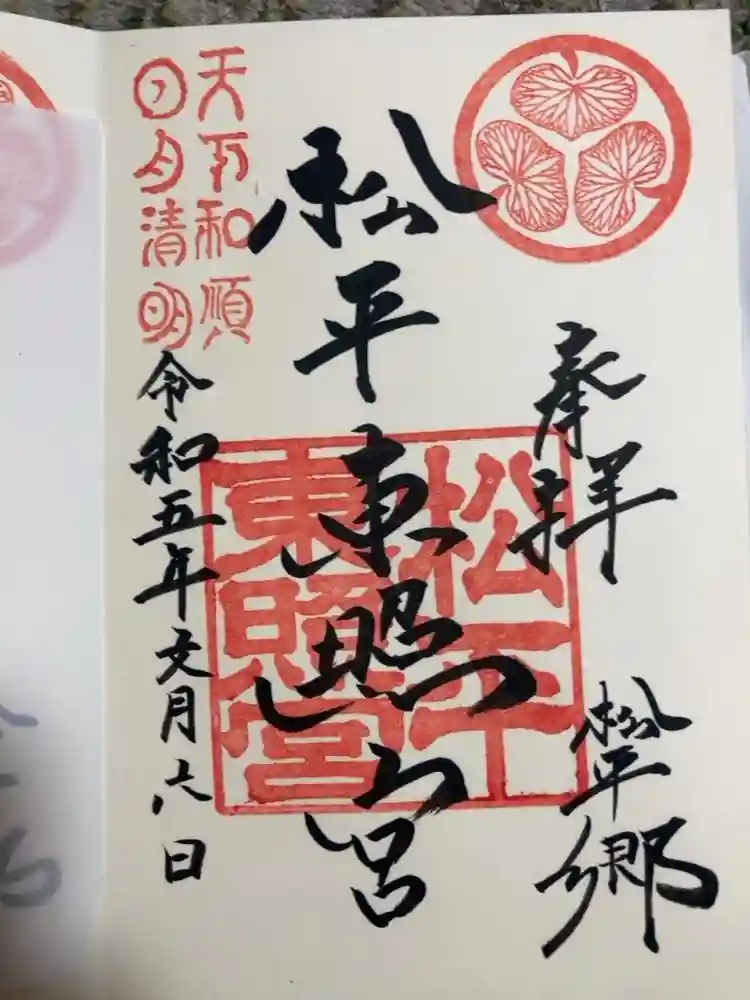 奉拝
松平郷
松平東照宮
松平
東照宮
天下和順
日月清明
令和五年文月六日